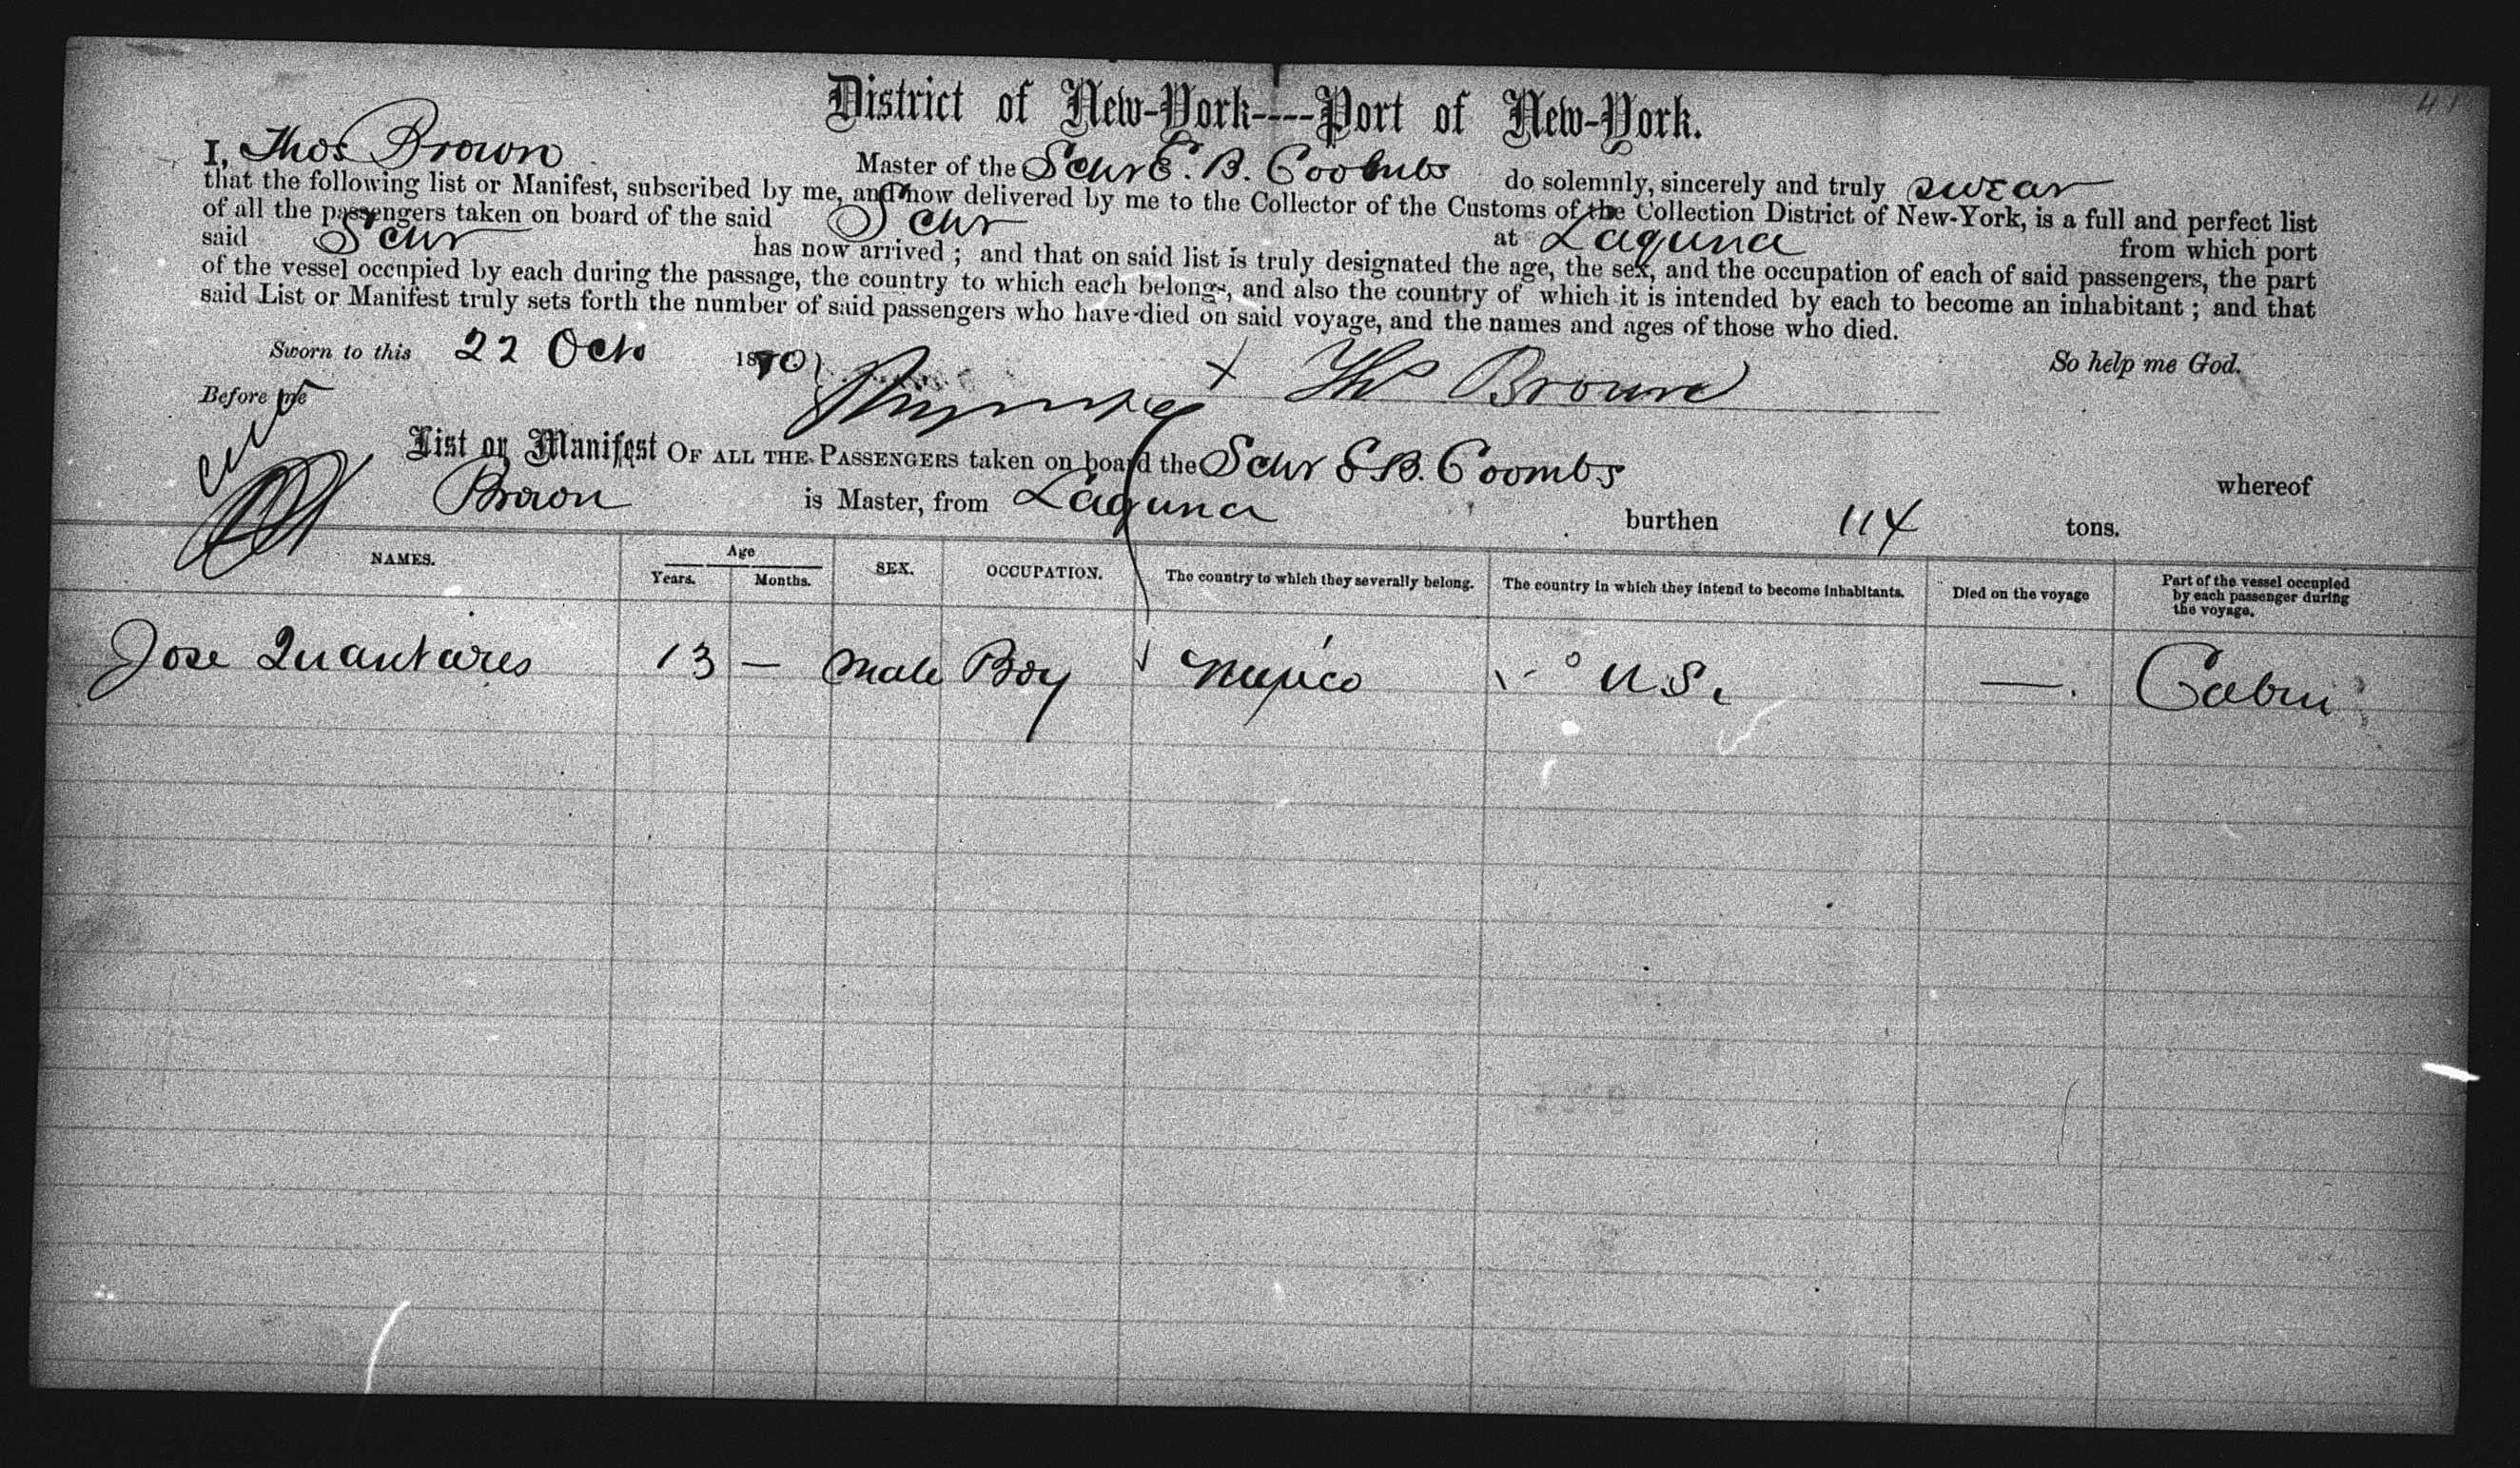 District of New-York----Port of New-York.
I, Thos Brown Master of the Schr E. B. Coombs do solemnly, sincerely and truly swear
that the following list or Manifest, subscribed by me, and now delivered by me to the Collector of the Customs of the Collection District of New-York, is a full and perfect list
of all the passengers taken on board of the said Schr at Laguna from which port
said Schr has now arrived; and that on said list is truly designated the age, the sex, and the occupation of each of said passengers, the part
of the vessel occupied by each during the passage, the country to which each belongs, and also the country of which it is intended by each to become an inhabitant; and that
said List or Manifest truly sets forth the number of said passengers who have died on said voyage, and the names and ages of those who died.
Sworn to this 22 Octo 1870 Thos Brown So help me God.
Before me
List or Manifest OF ALL THE PASSENGERS taken on board the Schr E B. Coombs whereof
Brown is Master, from Laguna burthen 114 tons.
NAMES. Age Years. Months. SEX. OCCUPATION. The country to which they severally belong. The country in which they intend to become inhabitants. Died on the voyage Part of the vessel occupied by each passenger during the voyage.
Jose Quantares 13 — Male Boy Mexico U.S. — Cabin